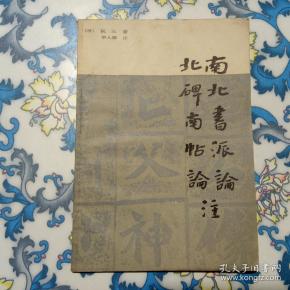 [清] 阮元 著
华人德 注
南北書派論
北碑南帖論 注
孔夫子旧书网